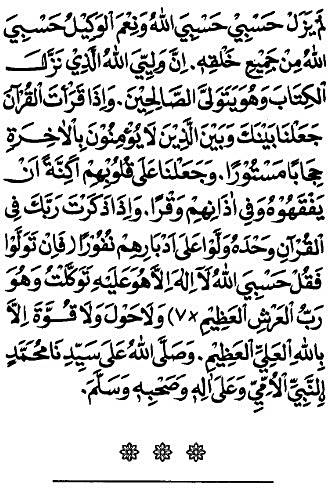 لَمْ يَزَلْ حَسْبِيْ حَسْبِيَ اللهُ وَنِعْمَ الْوَكِيْلُ حَسْبِيَ
اللهُ مِنْ جَمِيْعِ خَلْقِهِ. اِنَّ وَلِيِّيَ اللهُ الَّذِيْ نَزَّلَ
الْكِتَابَ وَهُوَ يَتَوَلَّى الصَّالِحِيْنَ. وَاِذَا قَرَأْتَ الْقُرْآنَ
جَعَلْنَا بَيْنَكَ وَبَيْنَ الَّذِيْنَ لَا يُؤْمِنُوْنَ بِالْاٰخِرَةِ
حِجَابًا مَسْتُوْرًا. وَجَعَلْنَا عَلَى قُلُوْبِهِمْ اَكِنَّةً اَنْ
يَفْقَهُوْهُ وَفِيْ اٰذَانِهِمْ وَقْرًا. وَاِذَا ذَكَرْتَ رَبَّكَ فِى
الْقُرْآنِ وَحْدَهُ وَلَّوْا عَلَى اَدْبَارِهِمْ نُفُوْرًا (فَاِنْ تَوَلَّوْا
فَقُلْ حَسْبِيَ اللهُ لَا اِلٰهَ اِلَّا هُوَ عَلَيْهِ تَوَكَّلْتُ وَهُوَ
رَبُّ الْعَرْشِ الْعَظِيْمِ ×٧) وَلَا حَوْلَ وَلَا قُوَّةَ اِلَّا
بِاللهِ الْعَلِيِّ الْعَظِيْمِ. وَصَلَّى اللهُ عَلَى سَيِّدِنَا مُحَمَّدٍ
اِلنَّبِيِّ الْاُمِّيِّ وَعَلَى اٰلِهِ وَصَحْبِهِ وَسَلَّمَ.